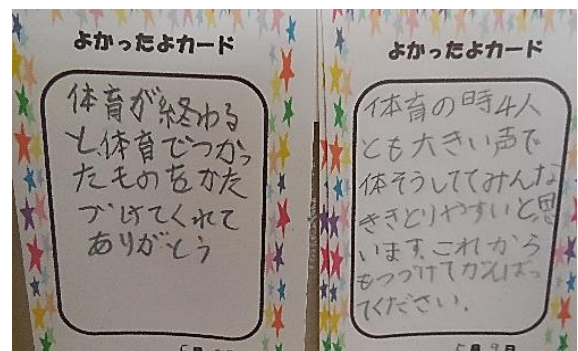 よかったよカード
体育が終わる
と体育でつかっ
たものをかた
づけてくれて
ありがとう
よかったよカード
体育の時4人
とも大きい声で
体そうしててみんな
ききとりやすいと思
います。これから
もつづけてがんばっ
てください。
5月9日